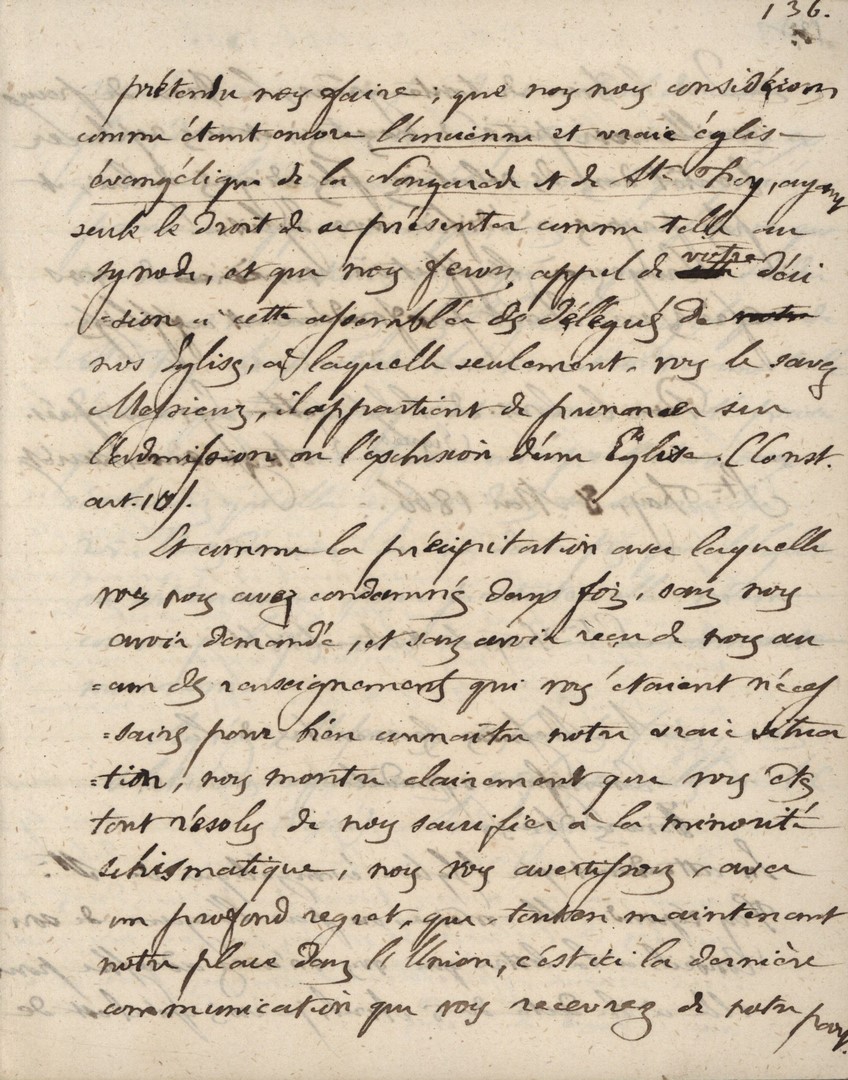 136.
prétendu nous faire; que nous nous considérons
comme étant encore l'ancienne et vraie église
évangélique de la Nougarède et de Ste Foy, ayant
seule le droit de se présenter comme telle au
synode, et que nous ferons appel de votre déci
=sion à cette assemblée des délégués de notre
nos Eglises, à laquelle seulement, vous le savez
Messieurs, il appartient de prononcer sur
l'admission ou l'exclusion d'une Eglise. (Const.
art. 10).
Et comme la précipitation avec laquelle
vous nous avez condamnés deux fois, sans nous
avoir demandé, et sans avoir reçu de nous au
=cun des renseignements qui vous étaient néces
=saires pour bien connaître notre vraie situa
=tion, nous montre clairement que vous êtes
tout résolus de nous sacrifier à la minorité
schismatique, nous vous avertissons, avec
un profond regret, que tout en maintenant
notre place dans l'Union, c'est ici la dernière
communication que vous recevrez de notre
part.